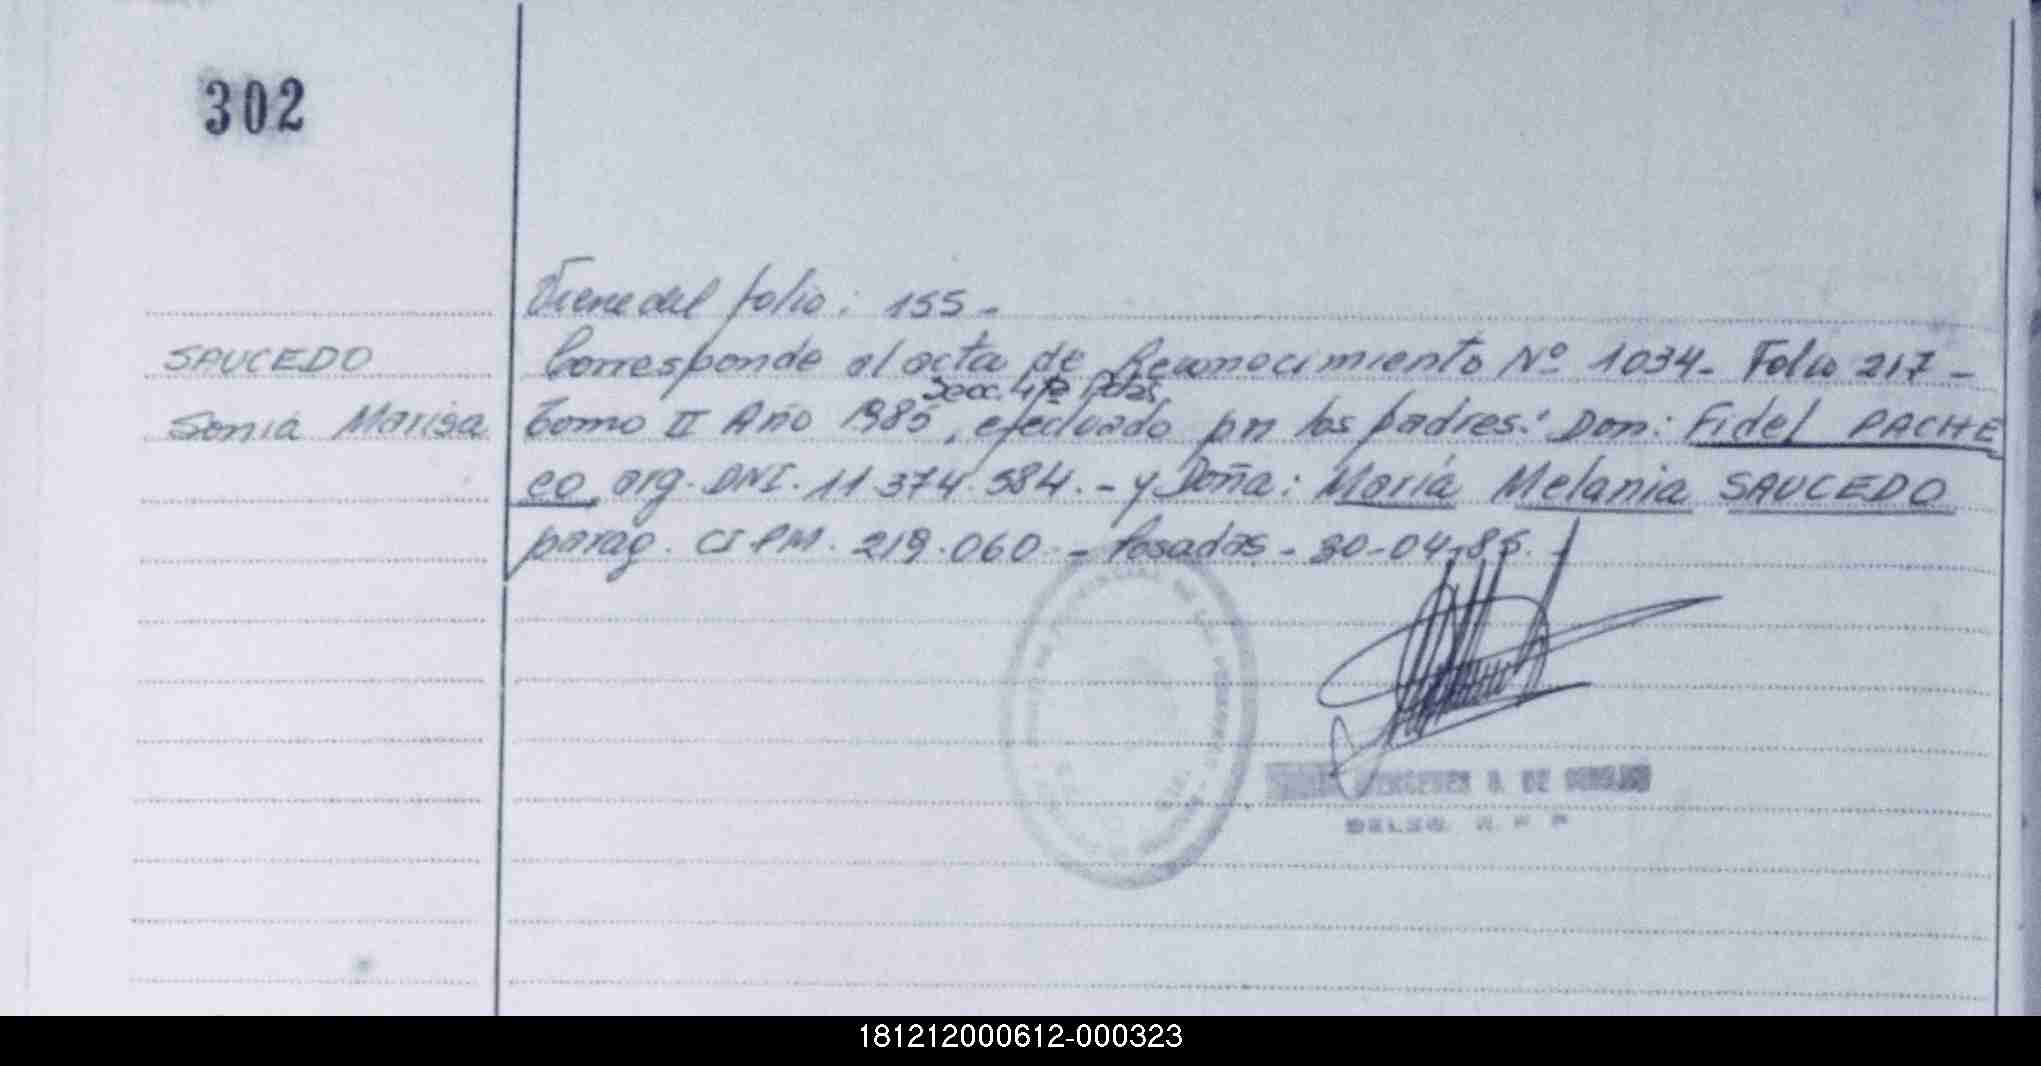 302
Viene del folio: 155.-
SAUCEDO
Sonia Marisa
Corresponde al acta de Reconocimiento Nº 1034.- Folio 217-
Secc. 4ta Pdas.
Tomo II Año 1985, efectuado por los padres: Don: Fidel PACHE
CO, arg. DNI. 11.374.584.- y Doña: María Melania SAUCEDO
parag. CI.PM. 219.060.- Posadas - 30-04-85.-
DE
DELEG. R. P. P
181212000612-000323